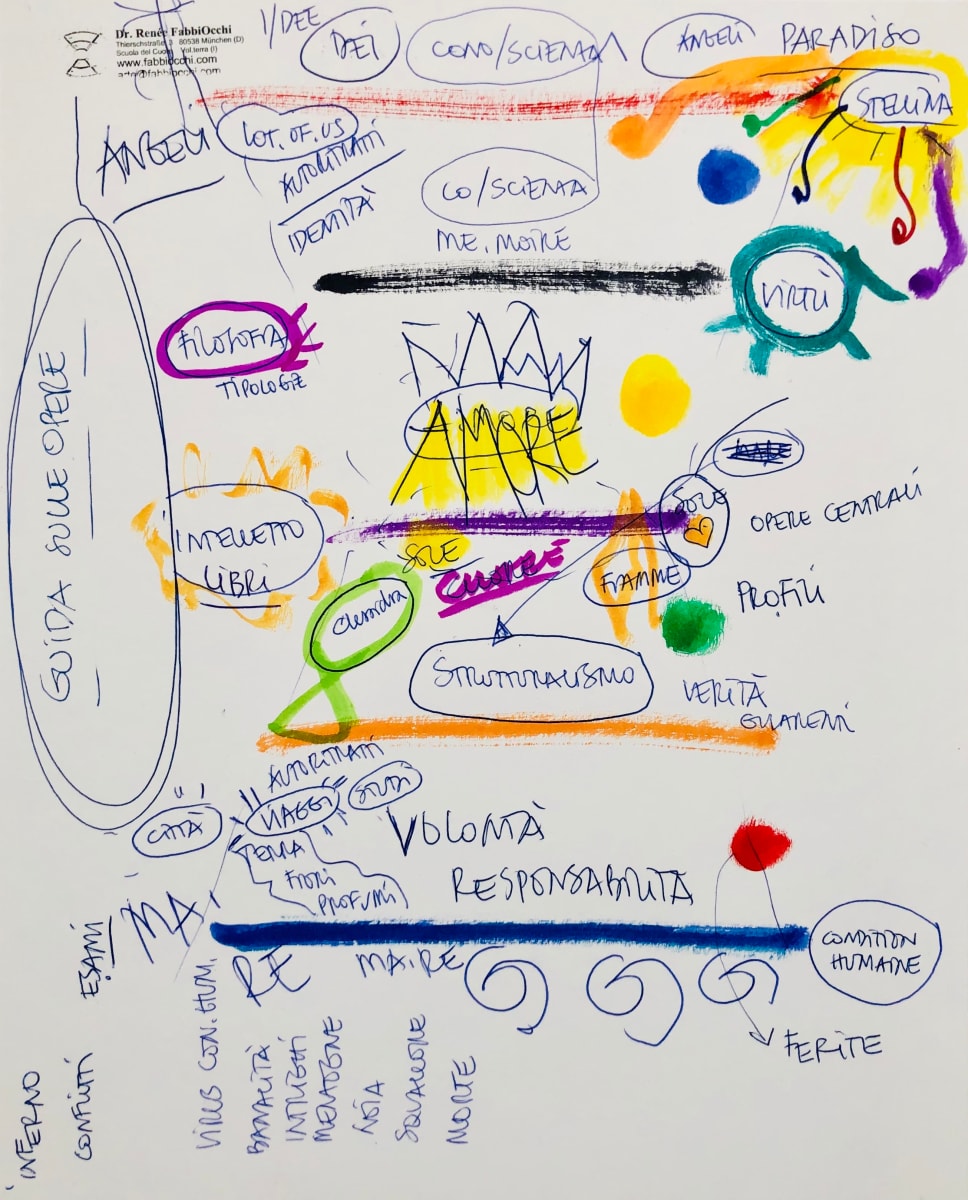 Dr. Renée FabbiOcchi
Thierschstraße 3 80538 München (D)
Scuola del Cuore Volterra (I)
www.fabbiocchi.com
arte@fabbiocchi.com
I/DEE
DEI
CONO/SCIENZA
ANGELI
PARADISO
STELLINA
ANGELI
LOT. OF. US
AUTORITRATTI
IDENTITÀ
CO/SCIENZA
ME. MOIRE
VIRTÙ
FILOSOFIA
TIPOLOGIE
AMORE
GUIDA SULLE OPERE
INTELLETTO
LIBRI
SOLE
CUORE
SOLE
OPERE CENTRALI
FIAMME
PROFILI
Clessidra
STRUTTURALISMO
VERITÀ
AUTORITRATTI
VIAGGI
STUDI
CITTÀ
TERRA
FIORI
PROFUMI
VOLONTÀ
RESPONSABILITÀ
MA.
RE
MA.RE
CONDITION
HUMAINE
FERITE
ESAMI
INFERNO
CONFLITTI
VIRUS CON. HUM.
BANALITÀ
INTRIGHI
MENZOGNE
NOIA
SQUALLORE
MORTE